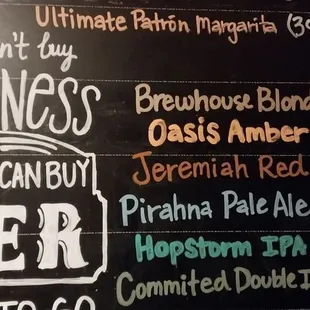 Ultimate Patrón Margarita (30
n't buy
NESS
CAN BUY
ER
TO GO
Brewhouse Blond
Oasis Amber
Jeremiah Red
Pirahna Pale Ale
Hopstorm IPA
Commited Double I